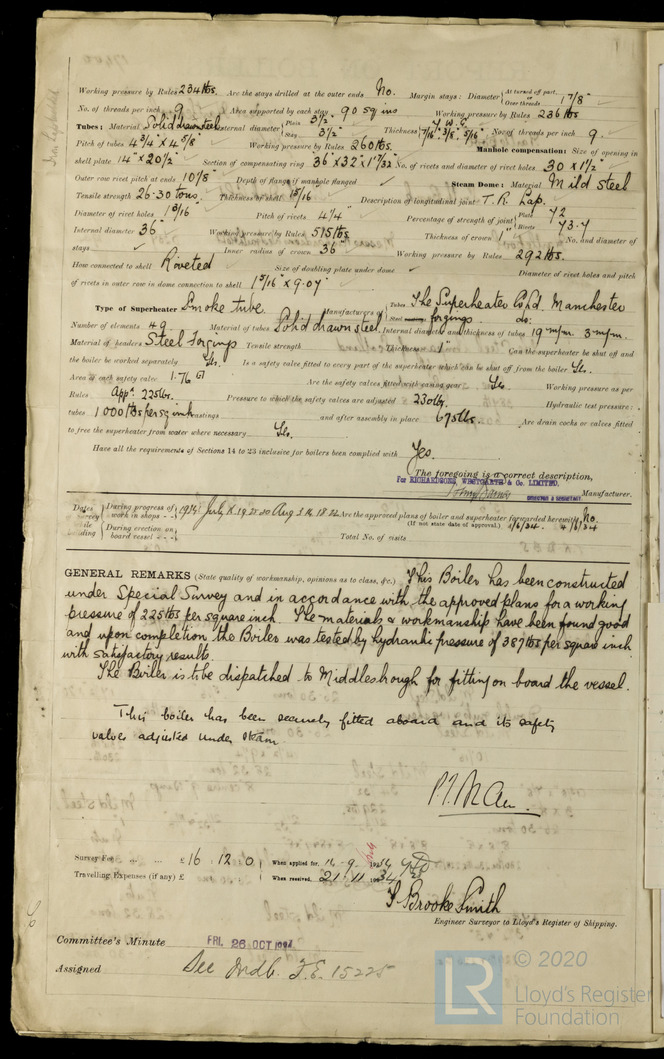 Working pressure by Rules 234 lbs. Are the stays drilled at the outer ends No. Margin stays: Diameter { At turned off part, or Over threads 1 7/8"
No. of threads per inch 9 Area supported by each stay 90 sq ins Working pressure by Rules 236 lbs
Tubes: Material Solid drawn steel External diameter { Plain 3 1/2" Stay 3 1/2" Thickness { 7/16" 3/8" 5/16" No. of threads per inch 9.
Pitch of tubes 4 3/4" x 4 5/8" Working pressure by Rules 260 lbs. Manhole compensation: Size of opening in
shell plate 14" x 20 1/2" Section of compensating ring 36" x 32" x 1 7/32" No. of rivets and diameter of rivet holes 30 x 1 1/2"
Outer row rivet pitch at ends 10 1/8" Depth of flange if manhole flanged Steam Dome: Material Mild steel
Tensile strength 26-30 tons. Thickness of shell 15/16 Description of longitudinal joint T. R. Lap.
Diameter of rivet holes 1 3/16 Pitch of rivets 4 1/4" Percentage of strength of joint { Plate 72 Rivets 73.7
Internal diameter 36" Working pressure by Rules 515 lbs Thickness of crown 1" No. and diameter of
stays Inner radius of crown 36" Working pressure by Rules 292 lbs.
How connected to shell Riveted Size of doubling plate under dome Diameter of rivet holes and pitch
of rivets in outer row in dome connection to shell 1 5/16" x 9.07"
Type of Superheater Smoke tube. Manufacturers of { Tubes The Superheater Co Ltd. Manchester Steel forgings do.
Number of elements 49 Material of tubes Solid drawn steel Internal diameter and thickness of tubes 19 m/m. 3 m/m.
Material of headers Steel Forgings Tensile strength Thickness 1" Can the superheater be shut off and
the boiler be worked separately Yes. Is a safety valve fitted to every part of the superheater which can be shut off from the boiler Yes.
Area of each safety valve 1.76 Are the safety valves fitted with easing gear Yes Working pressure as per
Rules App. 225 lbs. Pressure to which the safety valves are adjusted 230 lbs. Hydraulic test pressure:
tubes 1000 lbs per sq inch castings and after assembly in place 675 lbs. Are drain cocks or valves fitted
to free the superheater from water where necessary Yes.
Have all the requirements of Sections 14 to 23 inclusive for boilers been complied with Yes.
The foregoing is a correct description,
For RICHARDSONS, WESTGARTH & Co. LIMITED.
DIRECTOR & SECRETARY. Manufacturer.
Dates of Survey while building { During progress of work in shops - - 1934 July Aug Are the approved plans of boiler and superheater forwarded herewith No.
(If not state date of approval.) 4/6/34
During erection on board vessel - - - Total No. of visits
GENERAL REMARKS (State quality of workmanship, opinions as to class, &c.) This Boiler has been constructed
under Special Survey and in accordance with the approved plans for a working
pressure of 225 lbs per square inch. The materials & workmanship have been found good
and upon completion the Boiler was tested by hydraulic pressure of 387 lbs per square inch
with satisfactory results.
The Boiler is to be dispatched to Middlesbrough for fitting on board the vessel.
This boiler has been securely fitted aboard and its safety
valves adjusted under steam.
Survey Fee ... ... £ 16 : 12 : 0 When applied for, 14 . 9 . 1934
Travelling Expenses (if any) £ When received, 21 . 11 . 1934
S Brooke Smith
Engineer Surveyor to Lloyd's Register of Shipping.
Committee's Minute FRI. 26 OCT 1934
Assigned See Mdb. F.E. 15225
LR
© 2020
Lloyd's Register
Foundation